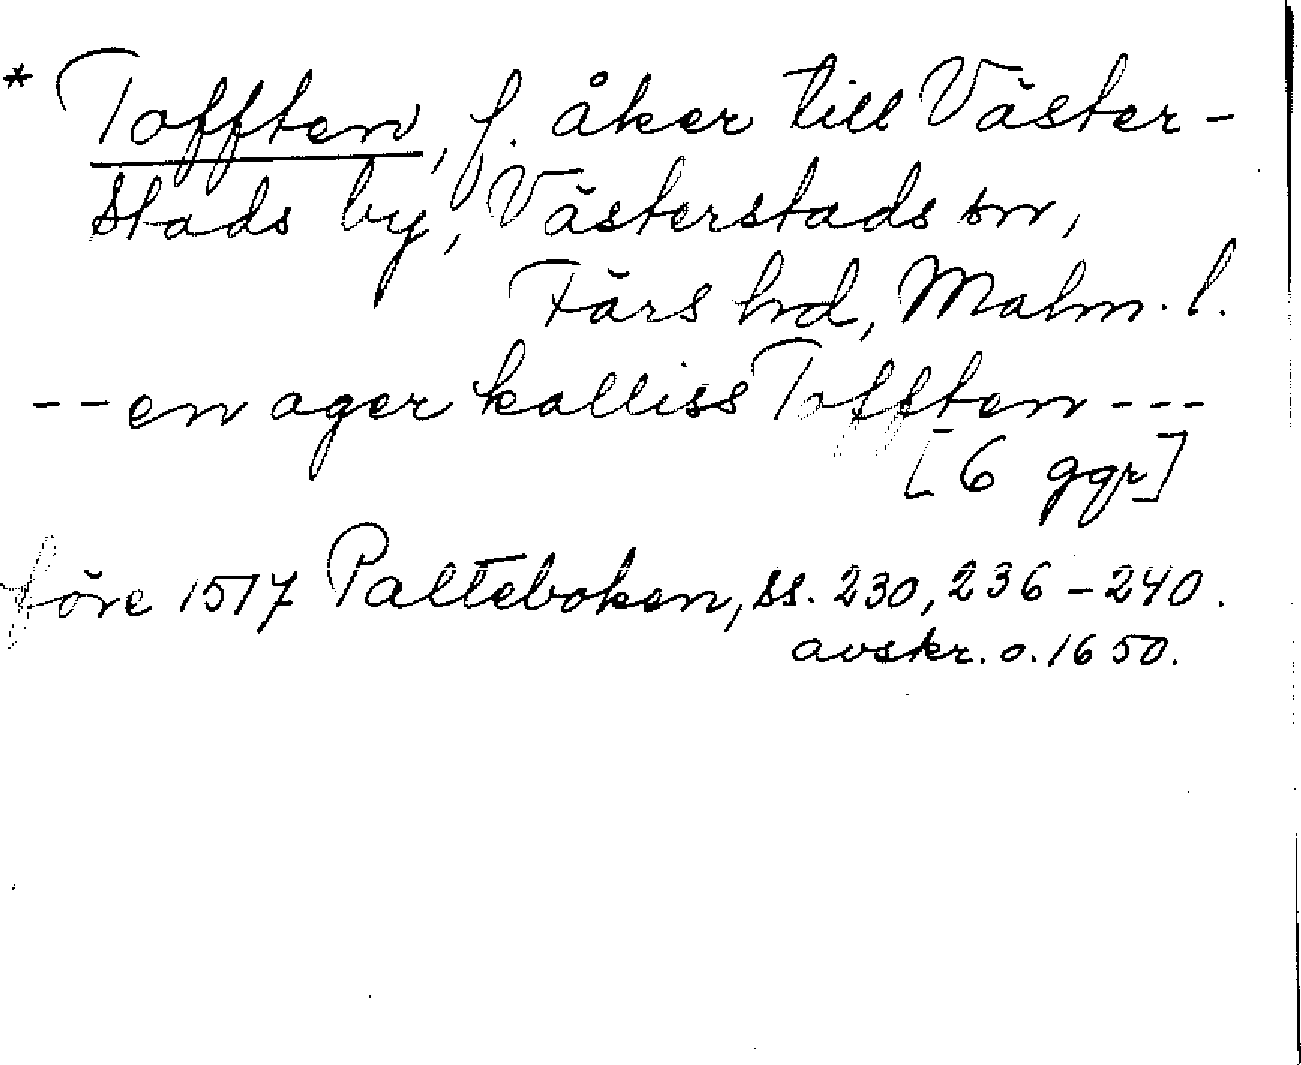 * Tofften, f. åker till Väster-
stads by, Västerstads sn,
Färs hd, Malm. l.
-- en ager kalliss Tofften ---
[6 ggr]
före 1517 Palteboken, ss. 230, 236-240.
avskr. o. 1650.